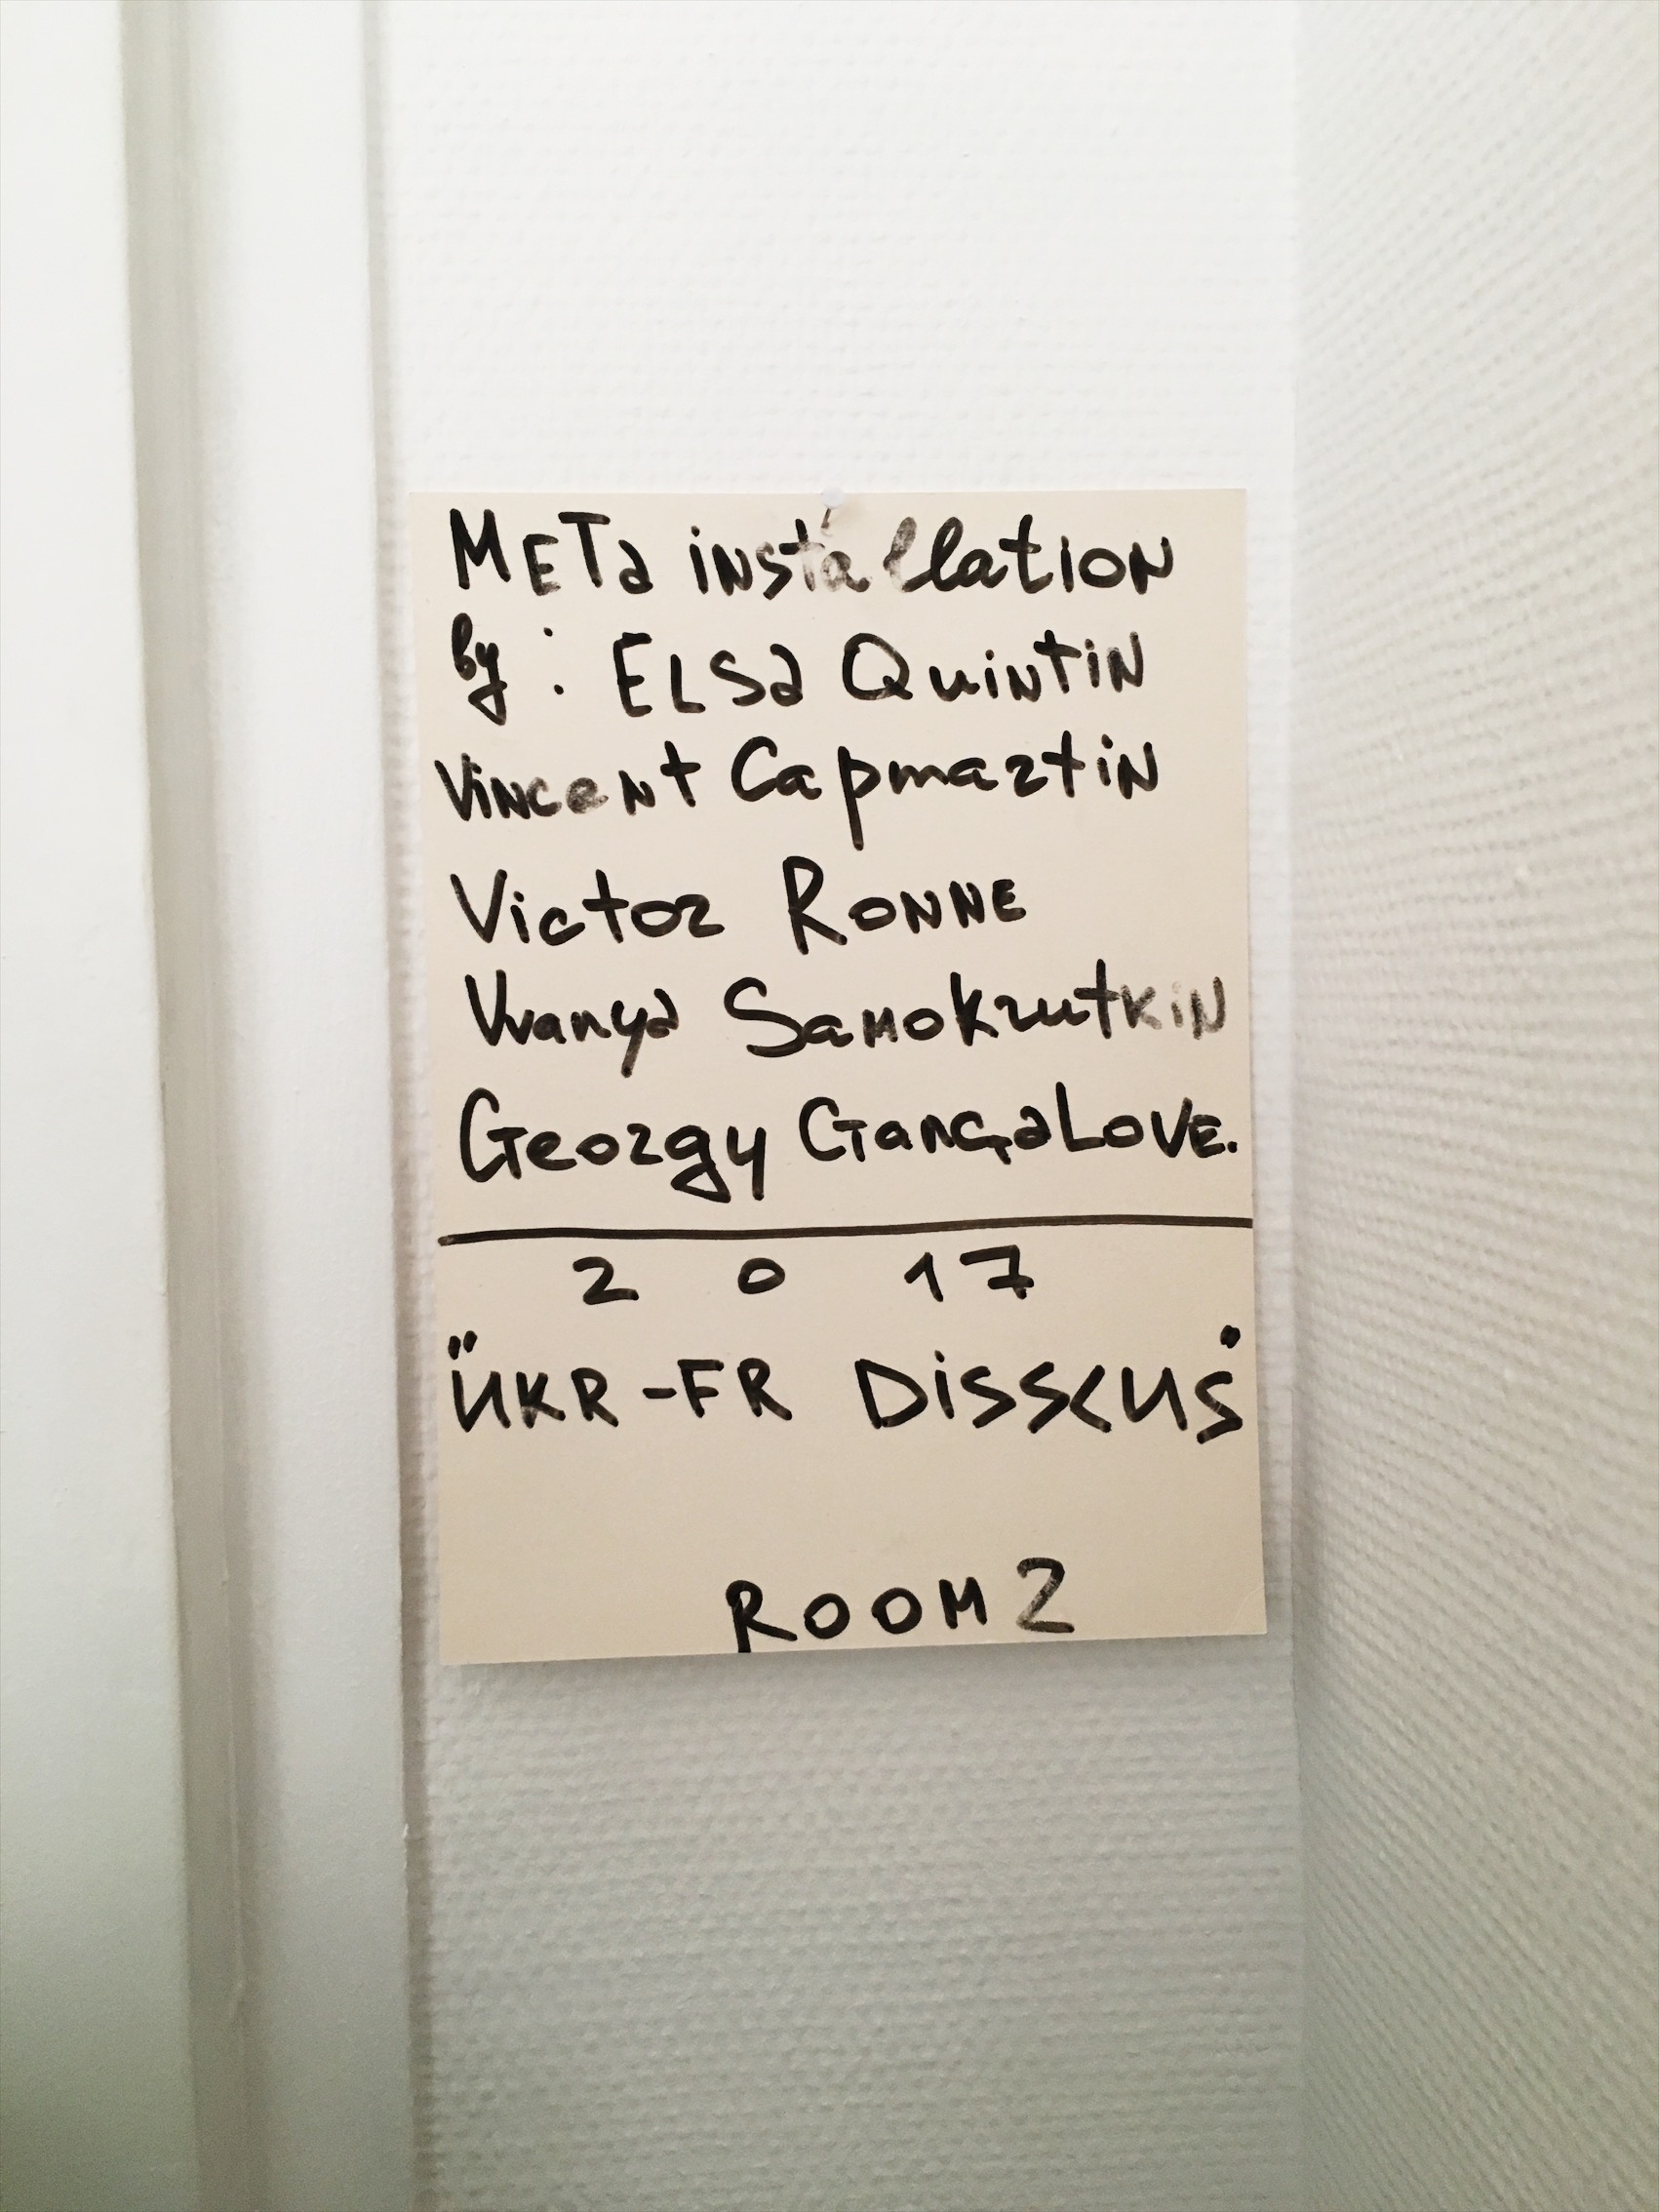 META installation
by: ELSA QuintiN
Vincent Capmartin
Victor RONNE
Vvanya Samokrutkin
Georgy GangaLOVE.
2 0 17
"UKR-FR DISSCUS"
ROOM 2